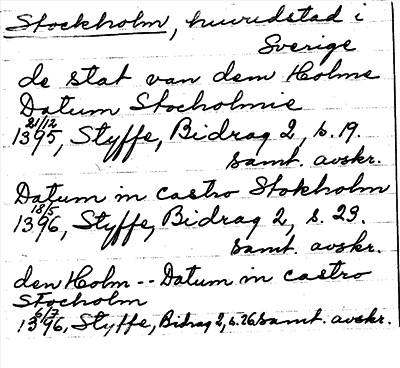 Stockholm, huvudstad i
Sverige
de stat van dem Holme
Datum Stocholmie
21/12
1395, Styffe, Bidrag 2, s. 19.
samt. avskr.
Datum in castro Stokholm
18/5
1396, Styffe, Bidrag 2, s. 23.
samt. avskr.
den Holm -- Datum in castro
Stocholm
6/7
1396, Styffe, Bidrag 2, s. 26 samt. avskr.